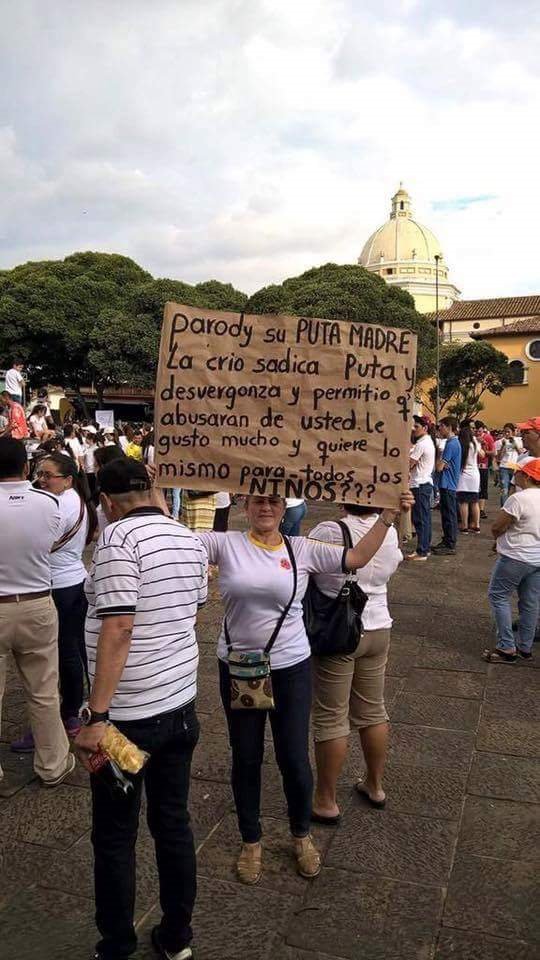 Parody su PUTA MADRE
La crio sadica Puta y
desvergonza y permitio q'
abusaran de usted. le
gusto mucho y quiere lo
mismo para todos los
NIÑOS???